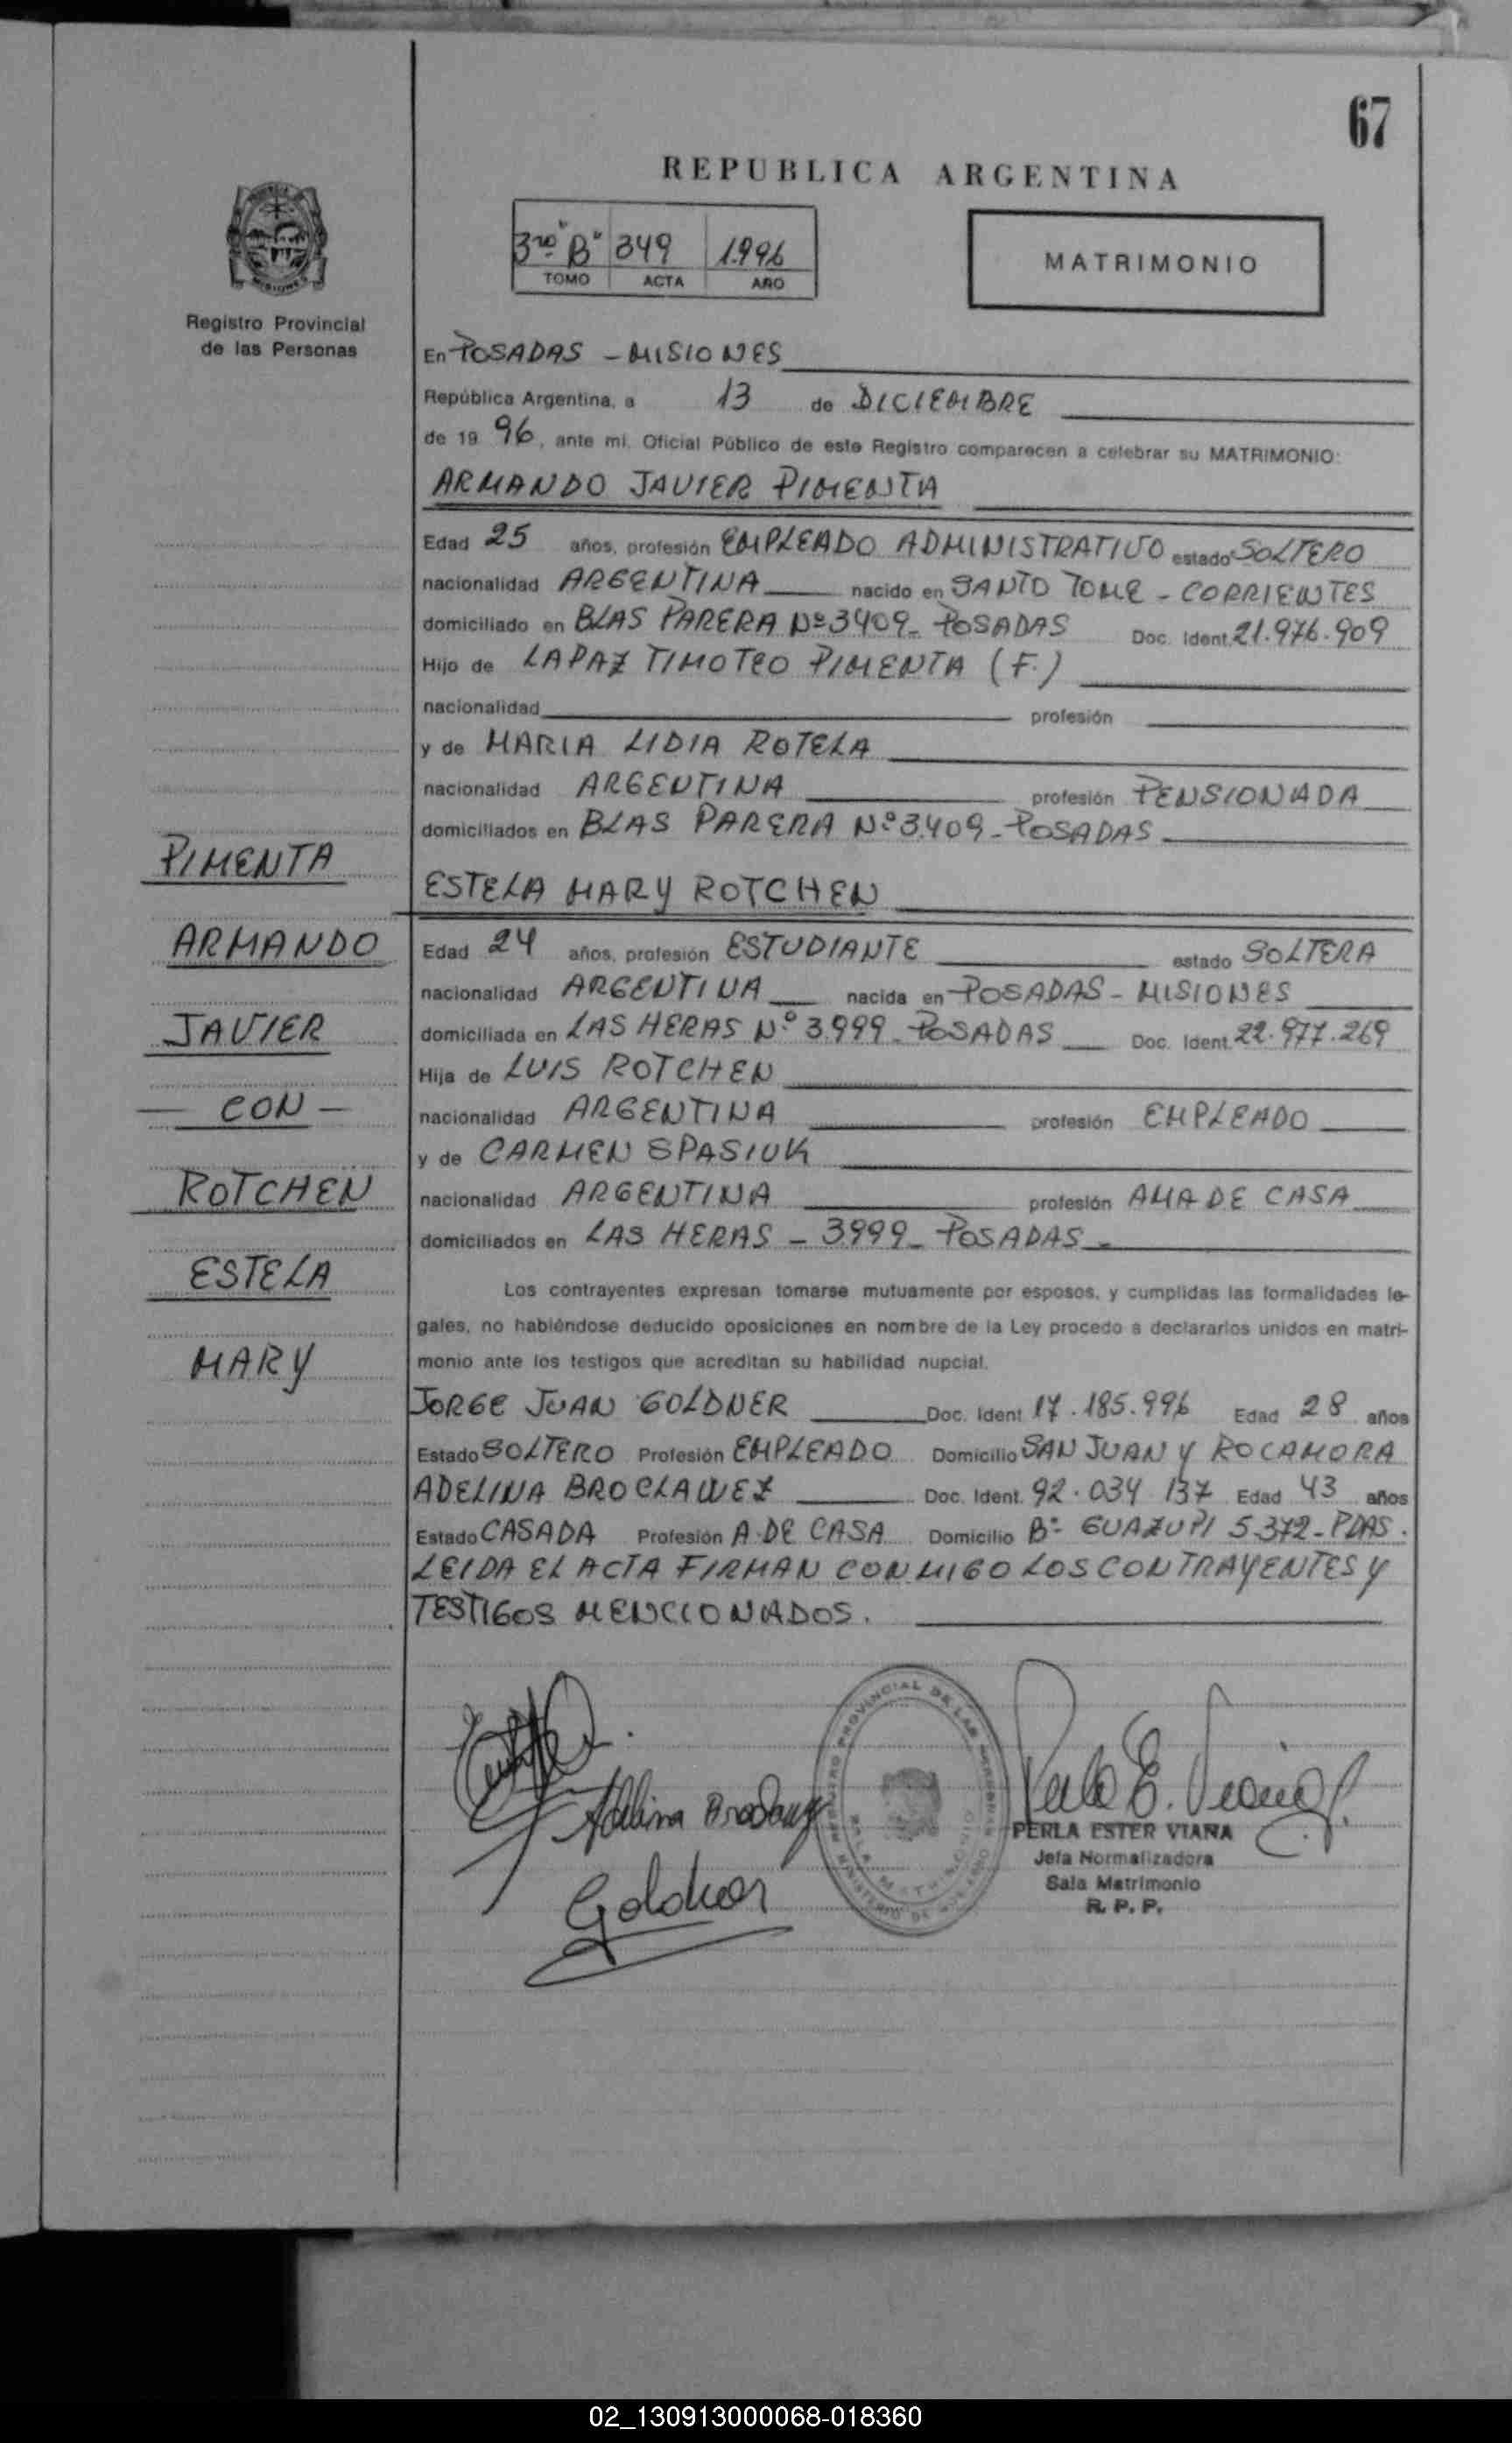 67
REPUBLICA ARGENTINA
3ro "B" 349 1.996
TOMO ACTA AÑO
MATRIMONIO
MISIONES
Registro Provincial
de las Personas
En POSADAS - MISIONES
República Argentina, a 13 de DICIEMBRE
de 19 96, ante mí, Oficial Público de este Registro comparecen a celebrar su MATRIMONIO:
ARMANDO JAVIER PIMENTA
Edad 25 años, profesión EMPLEADO ADMINISTRATIVO estado SOLTERO
nacionalidad ARGENTINA nacido en SANTO TOME - CORRIENTES
domiciliado en BLAS PARERA Nº 3409 - POSADAS Doc. Ident. 21.976.909
Hijo de LAPAZ TIMOTEO PIMENTA (F.)
nacionalidad profesión
y de MARIA LIDIA ROTELA
nacionalidad ARGENTINA profesión PENSIONADA
domiciliados en BLAS PARERA Nº 3.409 - POSADAS
ESTELA MARY ROTCHEN
Edad 24 años, profesión ESTUDIANTE estado SOLTERA
nacionalidad ARGENTINA nacida en POSADAS - MISIONES
domiciliada en LAS HERAS Nº 3.999 - POSADAS Doc. Ident. 22.977.269
Hija de LUIS ROTCHEN
nacionalidad ARGENTINA profesión EMPLEADO
y de CARMEN SPASIUK
nacionalidad ARGENTINA profesión AMA DE CASA
domiciliados en LAS HERAS - 3.999 - POSADAS -
PIMENTA
ARMANDO
JAVIER
- CON -
ROTCHEN
ESTELA
MARY
Los contrayentes expresan tomarse mutuamente por esposos, y cumplidas las formalidades le-
gales, no habiéndose deducido oposiciones en nombre de la Ley procedo a declararlos unidos en matri-
monio ante los testigos que acreditan su habilidad nupcial.
JORGE JUAN GOLDNER Doc. Ident 17.185.996 Edad 28 años
Estado SOLTERO Profesión EMPLEADO Domicilio SAN JUAN Y ROCAMORA
ADELINA BROCLAWEZ Doc. Ident. 92.034 137 Edad 43 años
Estado CASADA Profesión A. DE CASA Domicilio Bº GUAZUPI 5.372 - PDAS.
LEIDA EL ACTA FIRMAN CONMIGO LOS CONTRAYENTES Y
TESTIGOS MENCIONADOS.
Adelina
Goldner
REGISTRO PROVINCIAL DE LAS PERSONAS
Perla E. Viana
PERLA ESTER VIANA
Jefa Normalizadora
Sala Matrimonio
R. P. P.
02_130913000068-018360